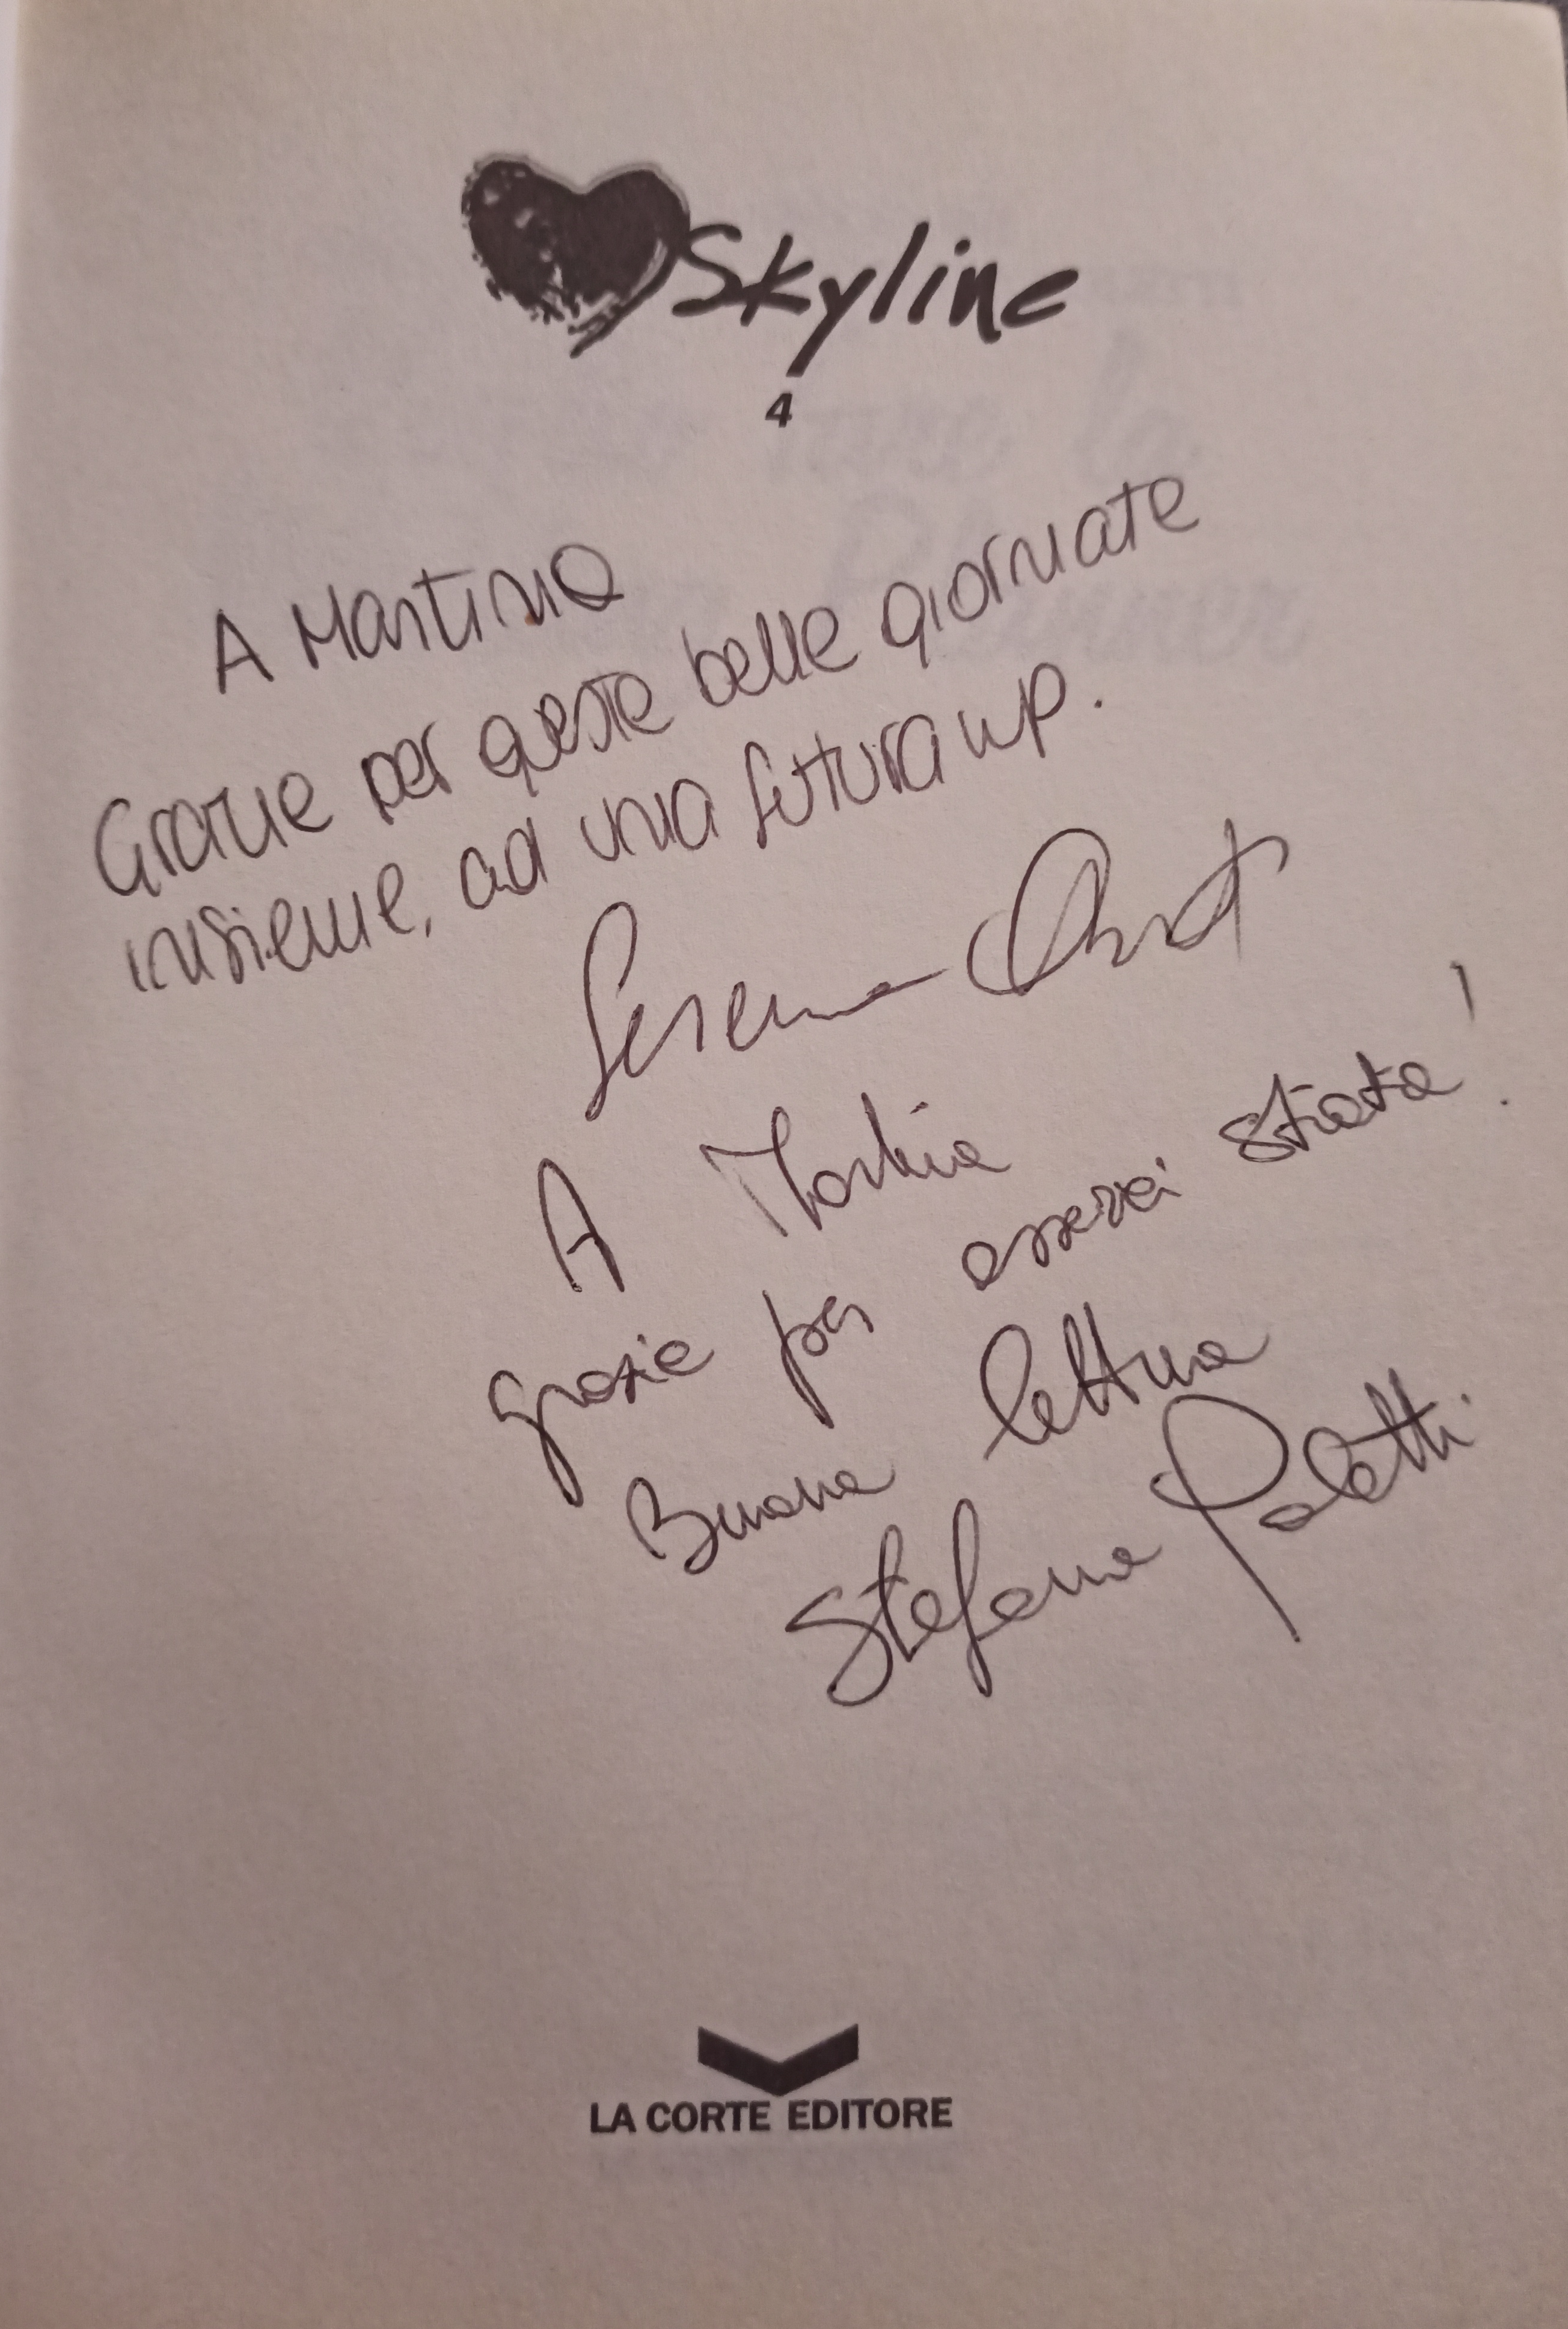 Skyline
4
A Martina
Grazie per queste belle giornate
insieme, ad una futura up.
Serena
A Martina
grazie per esserci stata!
Buona lettura
Stefania Poletti
LA CORTE EDITORE